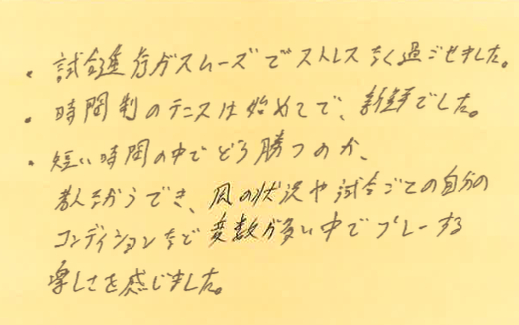 ・試合進行がスムーズでストレスなく過ごせました。
・時間制のテニスは始めてで、新鮮でした。
・短い時間の中でどう勝つのか、
考えながらでき、風の状況や試合ごとの自分の
コンディションなど変数が多い中でプレーする
楽しさを感じました。